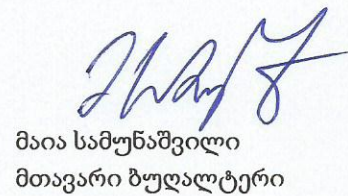 მაია სამუნაშვილი
მთავარი ბუღალტერი